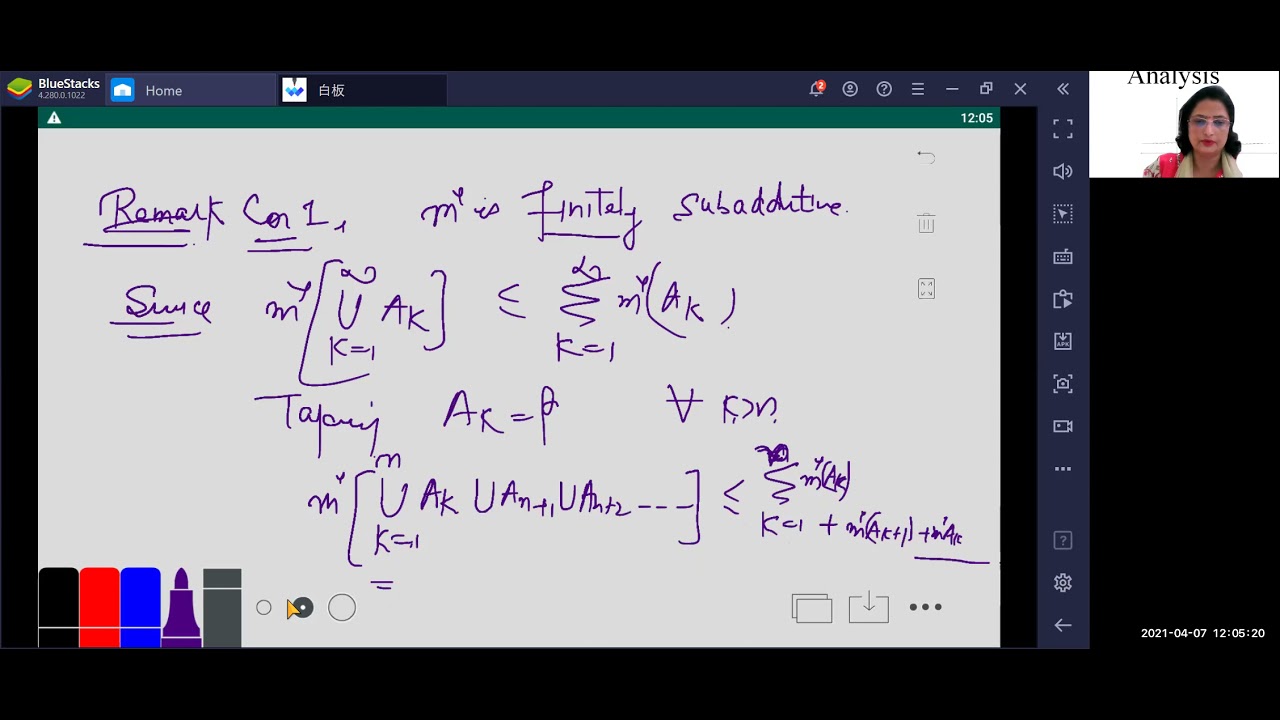 BlueStacks
4.280.0.1022
Home
白板
2
Analysis
12:05
Remark Cor 1, m* is finitely subadditive.
Since m*[∞ ∪ K=1 A_K] ≤ ∞ Σ K=1 m*(A_K).
Taking A_K = φ ∀ K>n.
m*[n ∪ K=1 A_K ∪ A_n+1 ∪ A_n+2 ---] ≤ Σ K=1 m*(A_K)
+ m*(A_K+1) + m*A_K
=
APK
2021-04-07 12:05:20